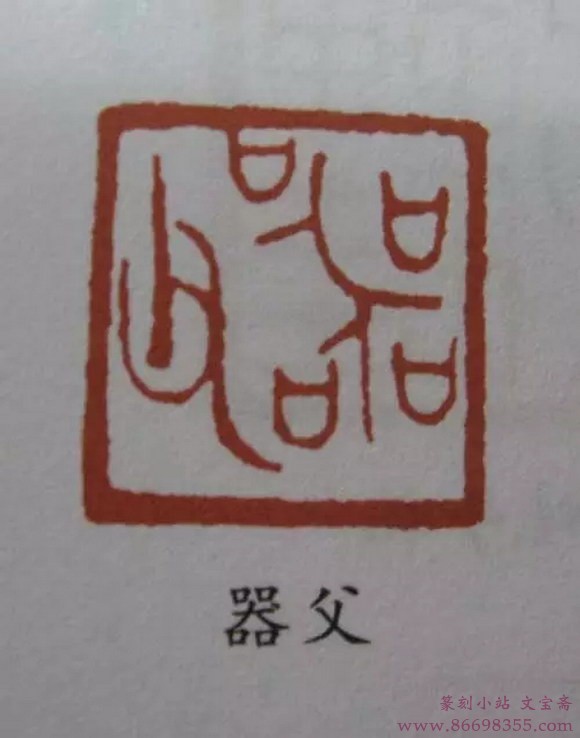 器父
器父
篆刻小站 文宝斋
www.86698355.com